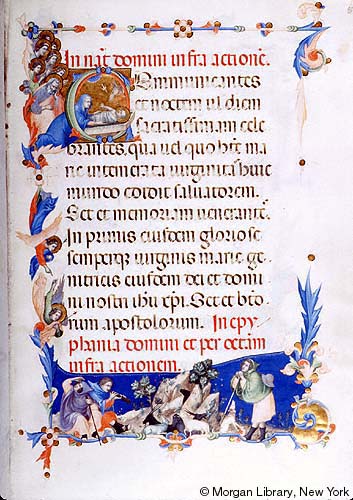 In nat domini infra actionē.
Communicantes
et noctem vel diem
sacratissimam cele
brantes, qua vel quo bte ma
rie intemerata virginitas huic
mundo edidit salvatorem.
Set et memoriam venerantes.
In primis eiusdem gloriose
semperque virginis marie ge
nitricis eiusdem dei et domi
ni nostri ihu xpi. Set et bto
rum apostolorum. In epy
phania domini et per octam
infra actionem.
© Morgan Library, New York